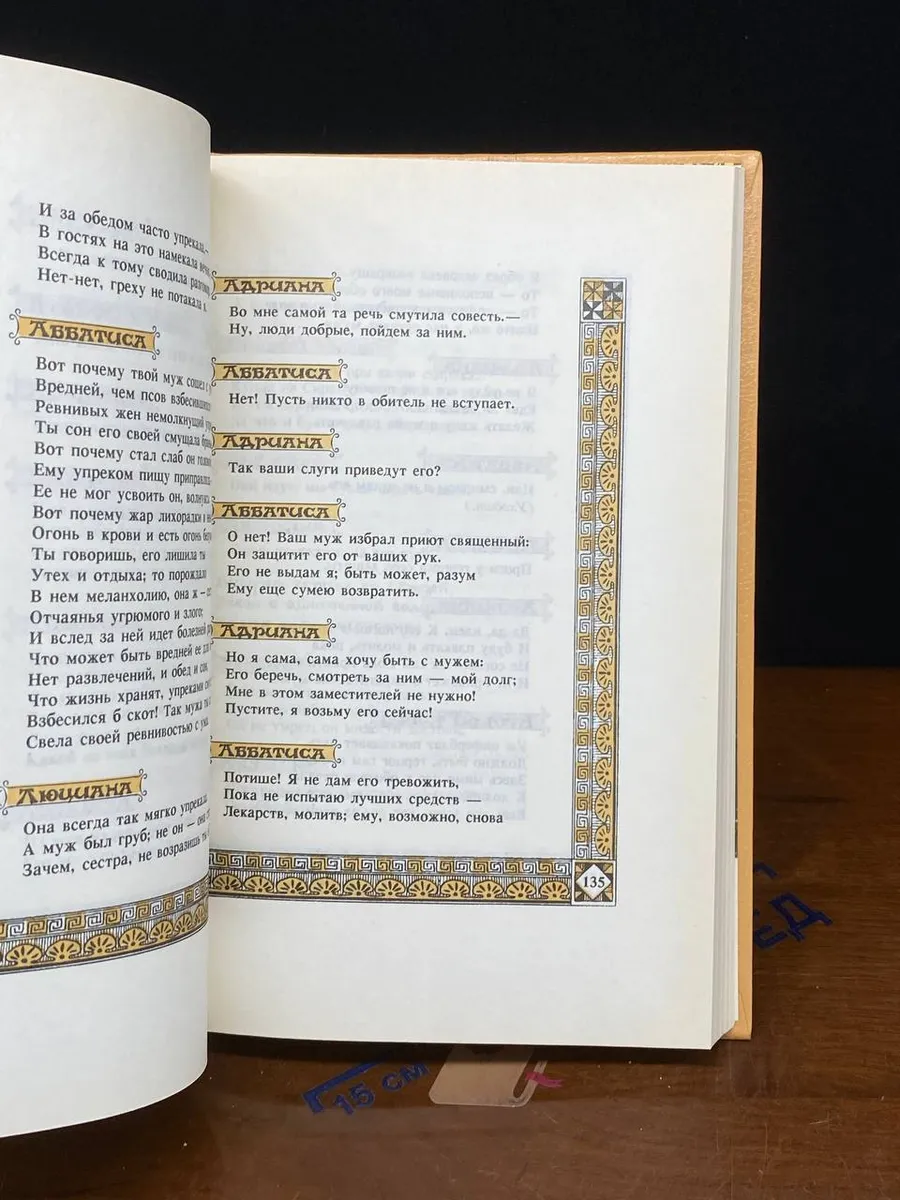 И за обедом часто упрекала,—
В гостях на это намекала
Всегда к тому сводила
Нет-нет, греху не потакала я.
АББАТИСА
Вот почему твой муж сошел с
Вредней, чем псов
Ревнивых жен немолкнущий
Ты сон его своей смущала
Вот почему стал слаб он
Ему упреком пищу
Ее не мог усвоить он,
Вот почему жар лихорадки
Огонь в крови и есть огонь
Ты говоришь, его лишила ты
Утех и отдыха; то порождало
В нем меланхолию, она ж —
Отчаянья угрюмого и злого;
И вслед за ней идет болезней
Что может быть вредней ее для
Нет развлечений, и обед и сон,
Что жизнь хранят, упреками
Взбесился б скот! Так мужа ты
Свела своей ревнивостью с ума.
ЛЮЦИАНА
Она всегда так мягко упрекала,
А муж был груб; не он — она
Зачем, сестра, не возразишь ты
АДРИАНА
Во мне самой та речь смутила совесть.—
Ну, люди добрые, пойдем за ним.
АББАТИСА
Нет! Пусть никто в обитель не вступает.
АДРИАНА
Так ваши слуги приведут его?
АББАТИСА
О нет! Ваш муж избрал приют священный:
Он защитит его от ваших рук.
Его не выдам я; быть может, разум
Ему еще сумею возвратить.
АДРИАНА
Но я сама, сама хочу быть с мужем:
Его беречь, смотреть за ним — мой долг;
Мне в этом заместителей не нужно!
Пустите, я возьму его сейчас!
АББАТИСА
Потише! Я не дам его тревожить,
Пока не испытаю лучших средств —
Лекарств, молитв; ему, возможно, снова
135
15 СМ